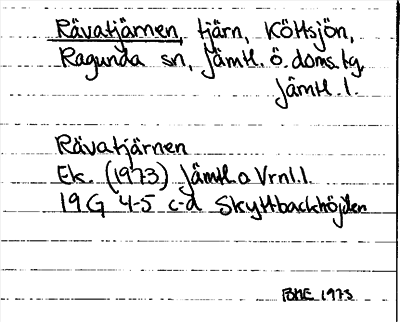 Rävatjärnen, tjärn, Köttsjön,
Ragunda sn, Jämtl. ö. doms.tg,
Jämtl. l.
Rävatjärnen
Ek. (1973) Jämtl. o Vrnl. l.
19 G 4-5 c-d Skyttbackhöjden
BME 1973